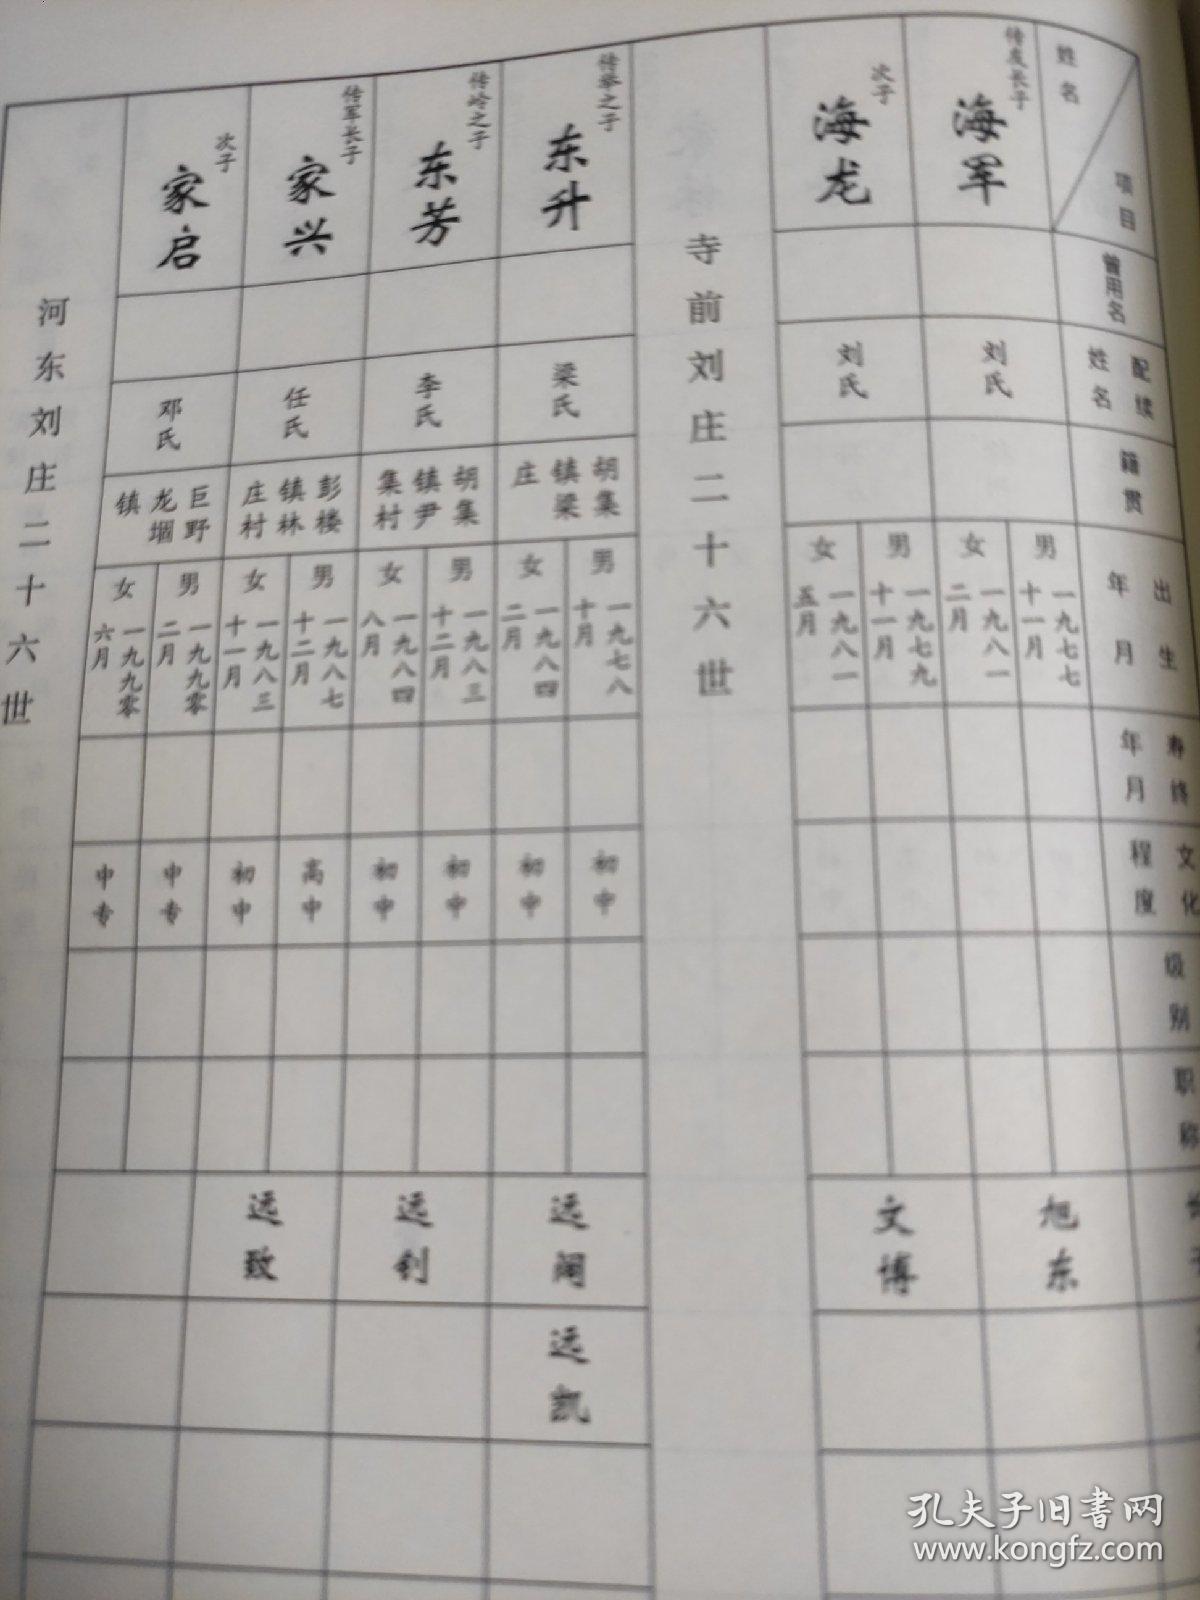 姓名
项目
曾用名
配续
姓名
籍贯
出生
年月
寿终
年月
文化
程度
级别
职称
传友长子
海军
刘氏
男
一九七七
十一月
女
一九八一
二月
旭东
次子
海龙
刘氏
男
一九七九
十一月
女
一九八一
五月
文博
寺前刘庄二十六世
传举之子
东升
梁氏
胡集
镇梁
庄
男
一九七八
十月
女
一九八四
二月
初中
初中
远阔
远凯
传岭之子
东芳
李氏
胡集
镇尹
集村
男
一九八三
十二月
女
一九八四
八月
初中
初中
远钊
传军长子
家兴
任氏
彭楼
镇林
庄村
男
一九八七
十二月
女
一九八三
十一月
高中
初中
远致
次子
家启
邓氏
巨野
龙堌
镇
男
一九九零
二月
女
一九九零
六月
中专
中专
河东刘庄二十六世
孔夫子旧书网
www.kongfz.com